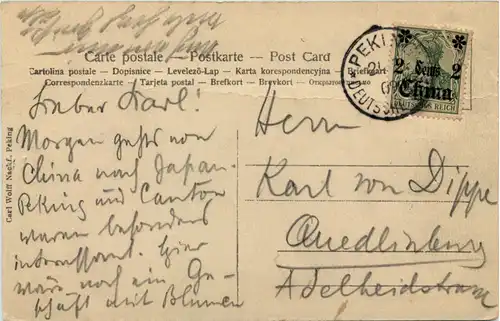 Carte postale — Postkarte — Post Card
Cartolina postale — Dopisnice — Levelező-Lap — Karta korespondencyjna — Briefkart
Correspondenzkarte — Tarjeta postal — Brefkort — Brevkort — Открытое письмо
PEKI
DEUTSCH
2 Cents 2
China
DEUTSCHES REICH
Carl Wolff Nachf. Peking
Lieber Karl!
Morgen gehts von
China nach Japan.
Peking und Canton
waren besonders
interessant. Hier
wars noch ein Ge-
schäft mit Blumen
Herrn
Karl von Dippe
Quedlinburg
Adelheidstrasse